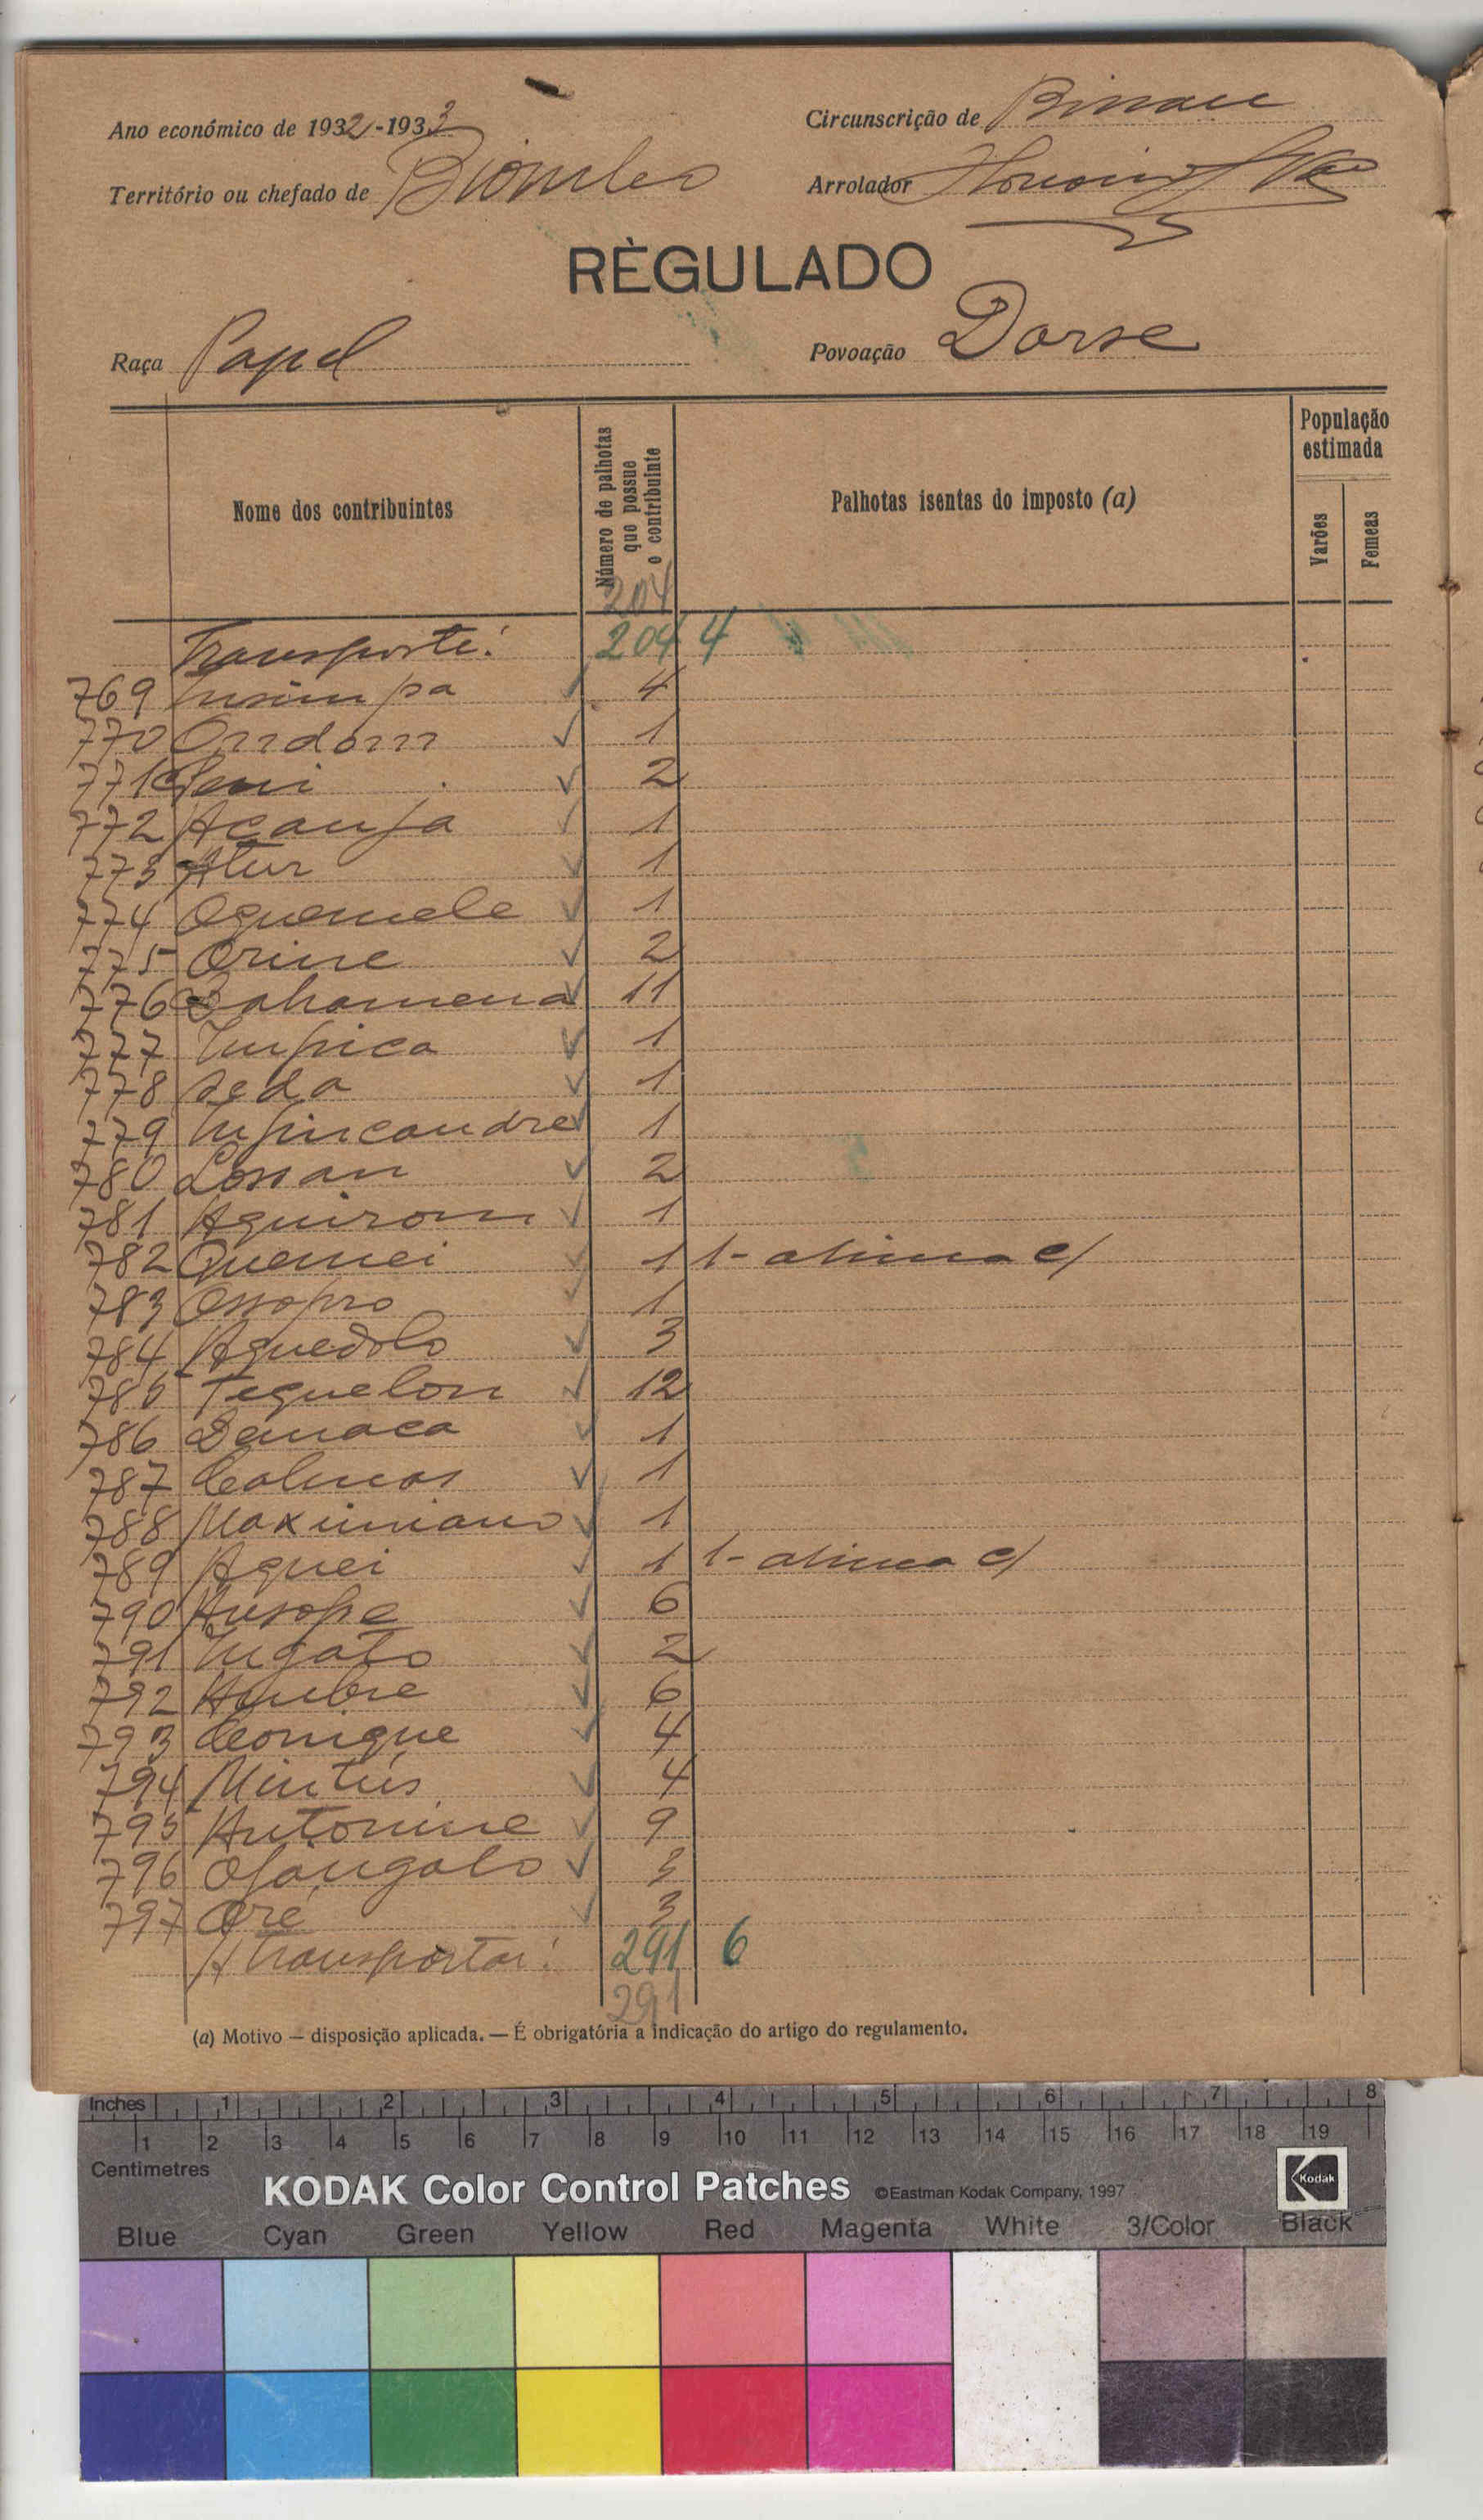 Ano económico de 1932-1933
Circunscrição de Bissau
Território ou chefado de Biombo
Arrolador
RÈGULADO
Raça Papel
Povoação Dorse
Nome dos contribuintes
Número de palhotas que possue o contribuinte
Palhotas isentas do imposto (a)
População estimada
Varões
Femeas
204
Transporte: 204 4
769 Insimpa 4
770 Ondom 1
771 2
772 Acanfa 1
773 Atur 1
774 Oquemele 1
775 Orine 2
776 Bahamena 11
777 Impica 1
778 Seda 1
779 Infincandre 1
780 Lossan 2
781 Aquirom 1
782 Quemei 1 1- alinea c/
783 Ossopro 1
784 Aquedolo 3
785 Tequelon 12
786 Demaca 1
787 Calmos 1
788 Maximiano 1
789 Aquei 1 1- alinea c/
790 Ansope 6
791 Ingato 2
792 6
793 Conique 4
794 Mintés 4
795 Antonine 9
796 Ofangalo 3
797 Oré 3
A Transportar: 291 6
291
(a) Motivo — disposição aplicada. — É obrigatória a indicação do artigo do regulamento.
Inches 1 2 3 4 5 6 7 8
1 2 3 4 5 6 7 8 9 10 11 12 13 14 15 16 17 18 19
Centimetres
KODAK Color Control Patches ©Eastman Kodak Company, 1997 Kodak
Blue Cyan Green Yellow Red Magenta White 3/Color Black